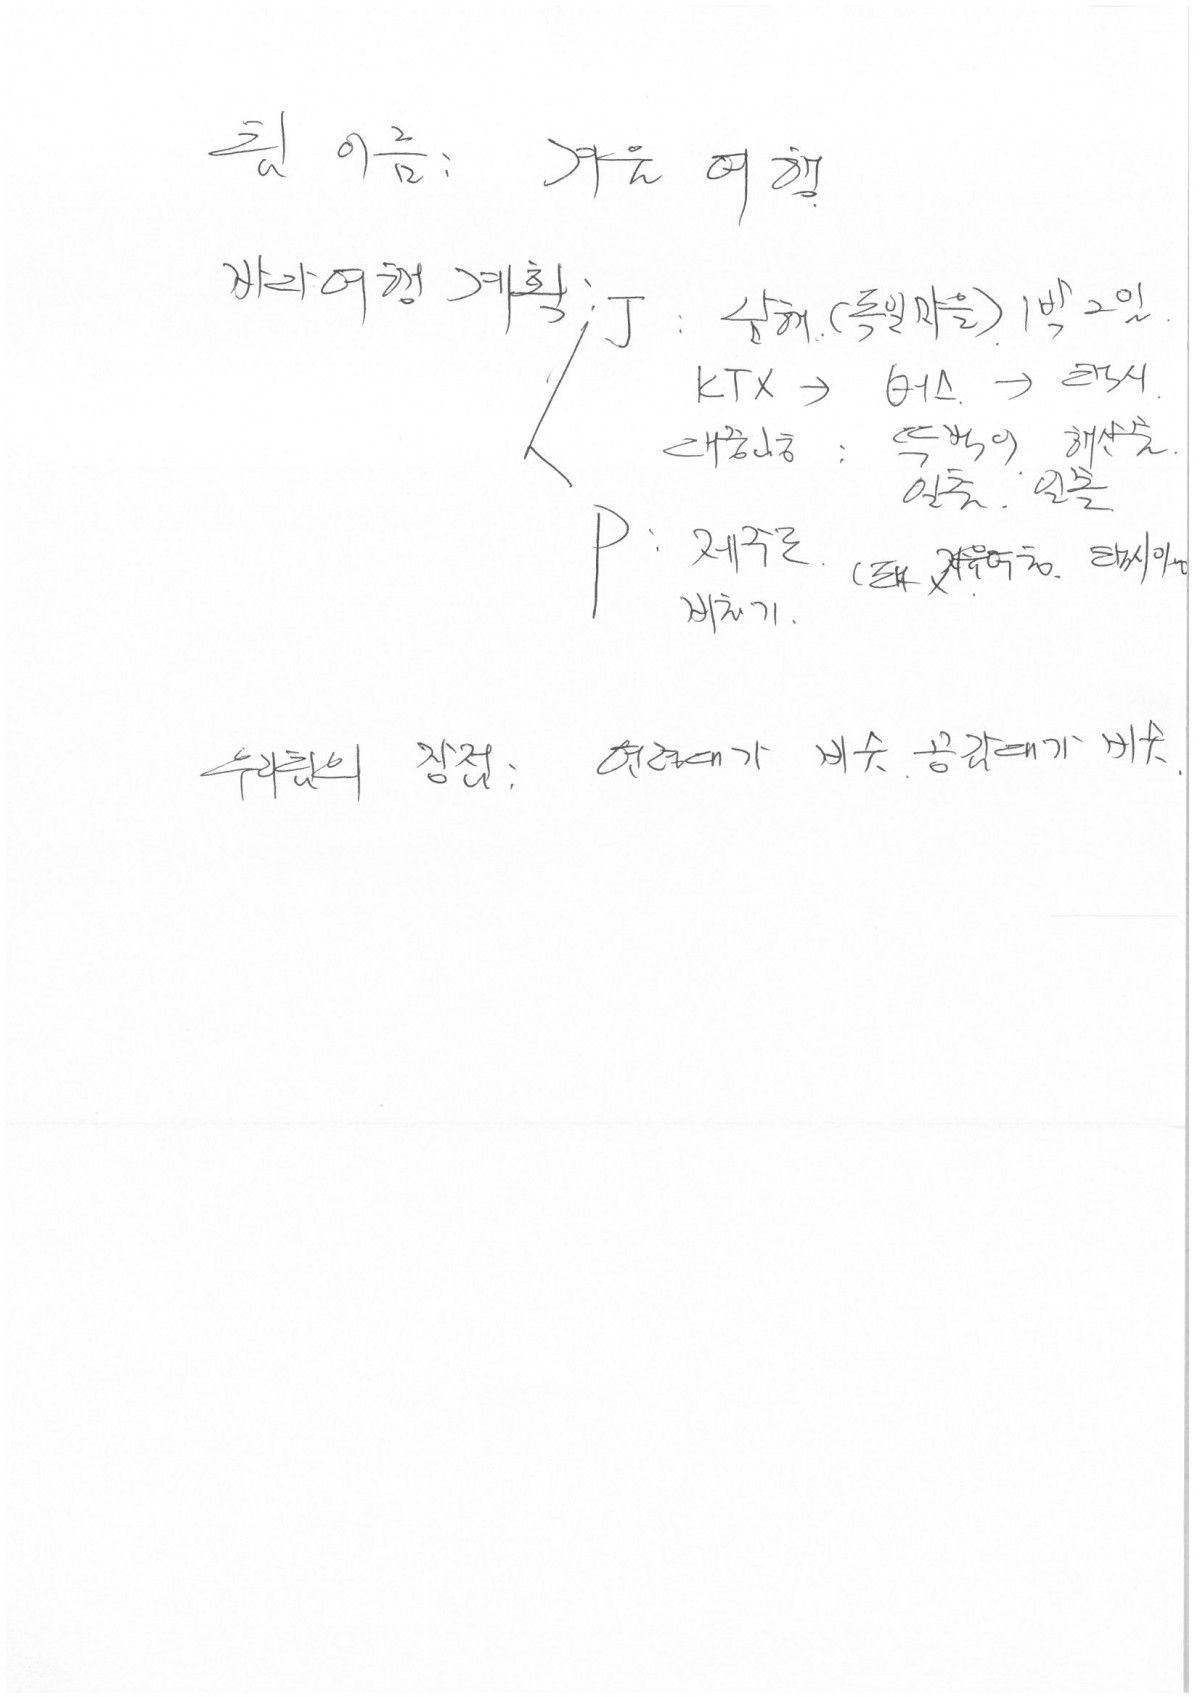 팀 이름: 겨울 여행
바라여행 계획: J : 남해 (독일마을) 1박 2일.
KTX → 버스 → 택시.
대중교통 : 뚜벅이 해산물.
일출. 일몰
P : 제주도. 자유여행. 택시
비행기.
우리팀의 장점: 연령대가 비슷. 공감대가 비슷.